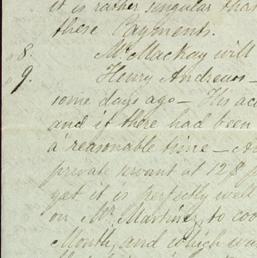 it is rather singular that
these Payments.
8. Mr. Mackay will
9. Henry Andrews
some days ago— His acc
and if there had been
a reasonable time—
private servant at 128 p
yet it is perfectly well
on Mr. to coo
Month, and which wa